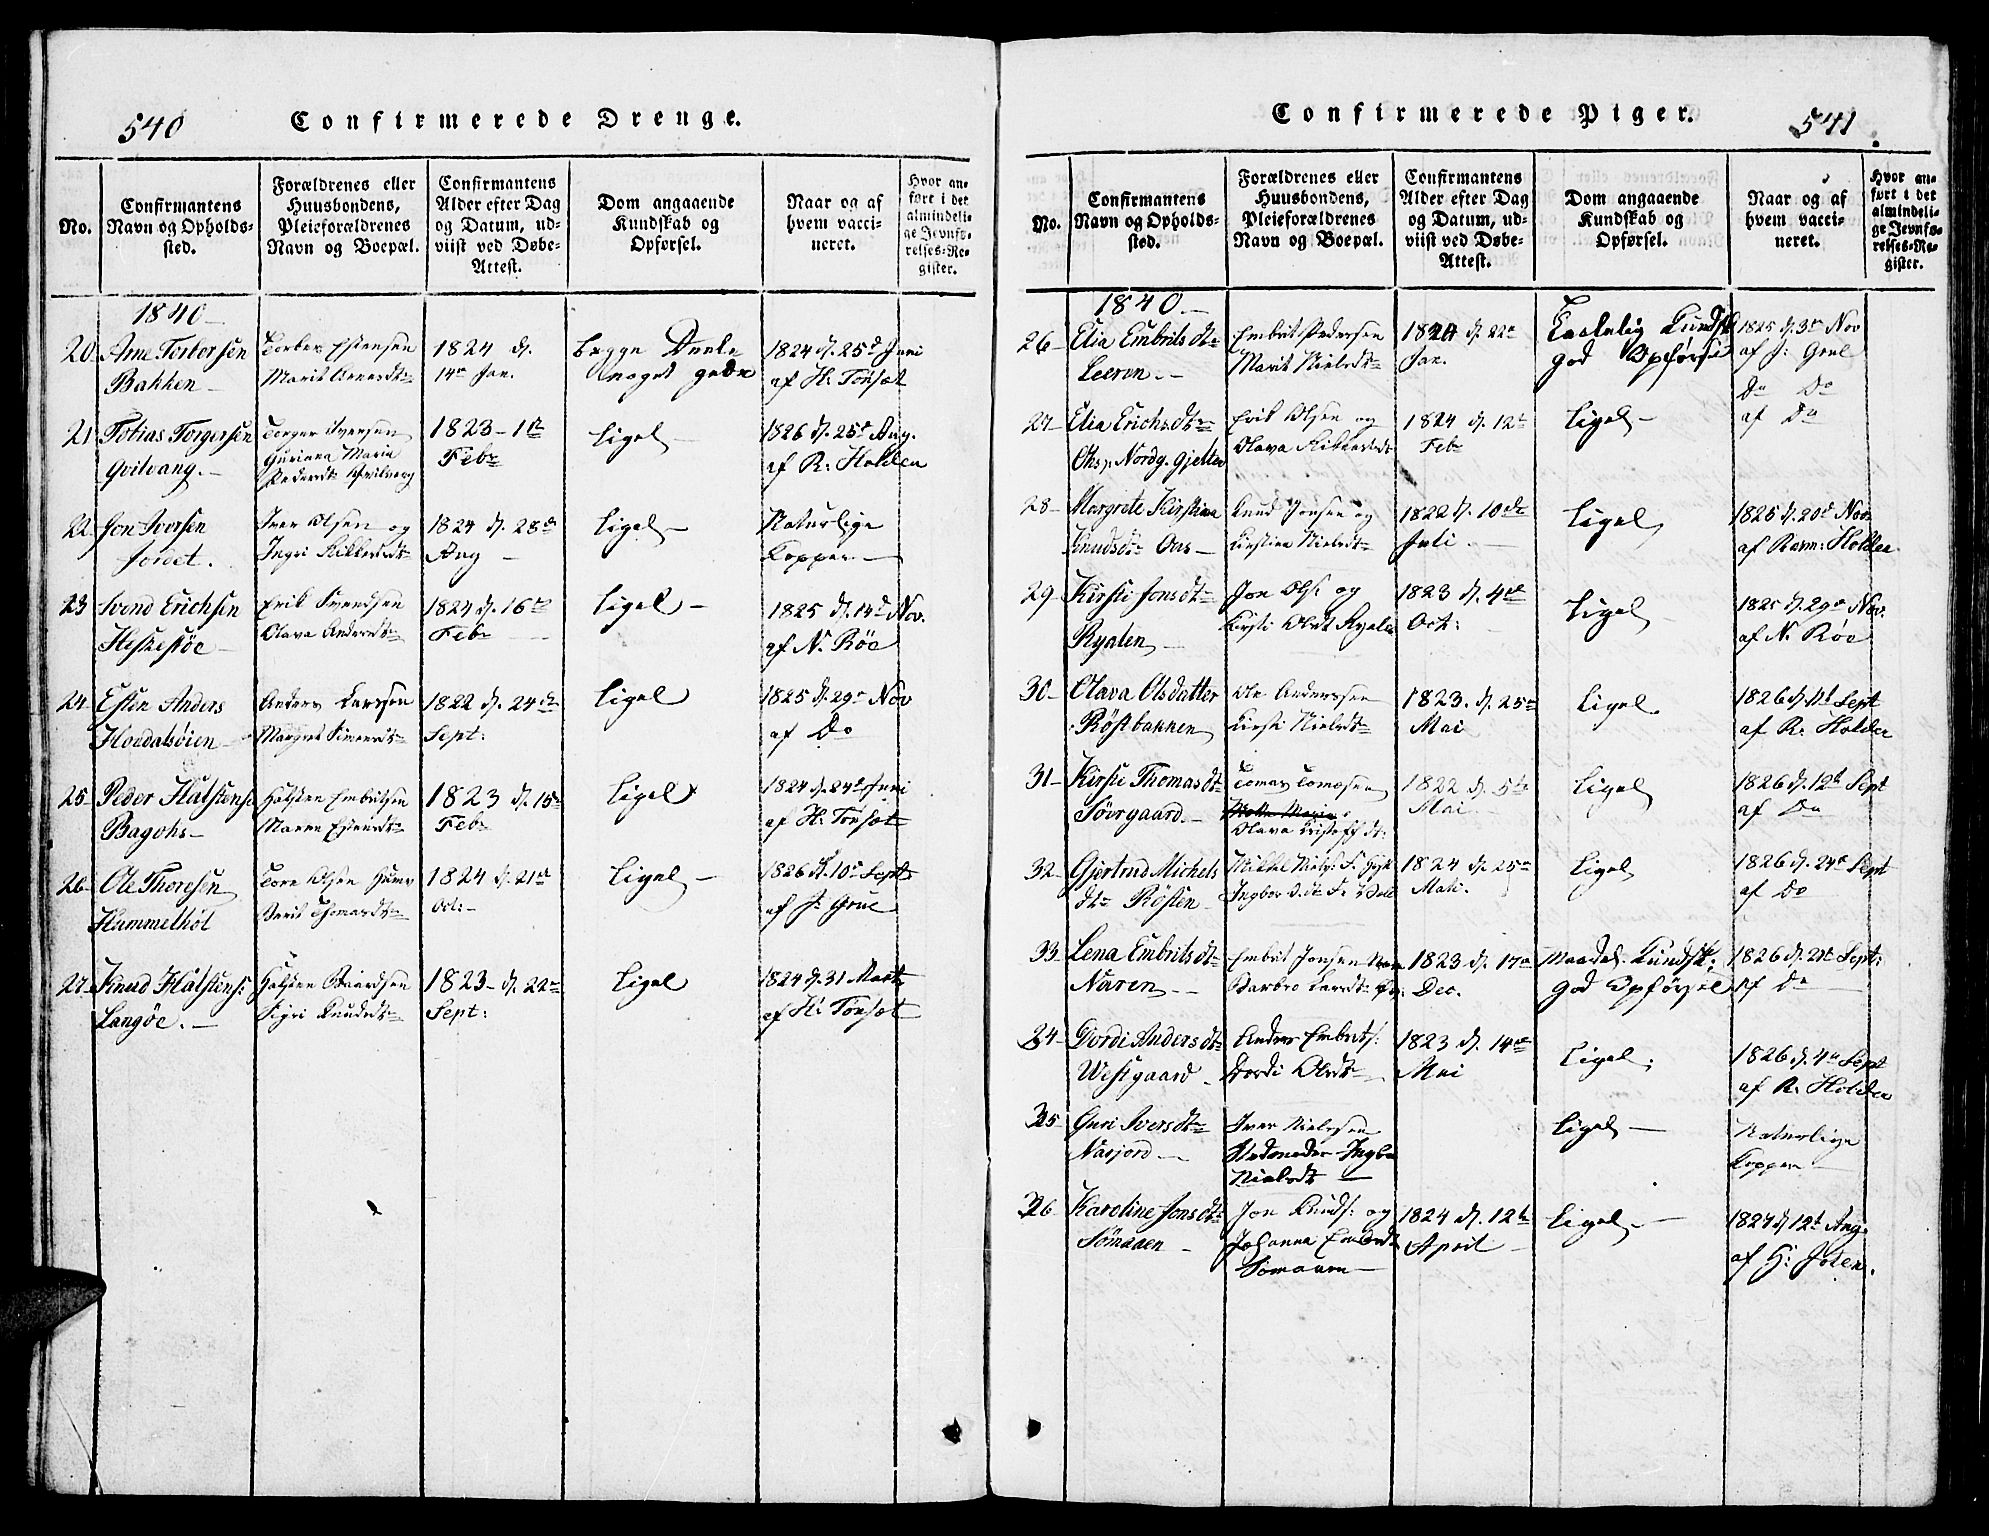 540
Confirmerede Drenge.
No.
Confirmantens
Navn og Opholds-
sted.
Forældrenes eller
Huusbondens,
Pleieforældrenes
Navn og Boepæl.
Confirmantens
Alder efter Dag
og Datum, ud-
viist ved Døbe-
Attest.
Dom angaaende
Kundskab og
Opførsel.
Naar og af
hvem vacci-
neret.
Hvor an-
ført i det
almindeli-
ge Jevnfø-
relses-Re-
gister.
1840
20
Arne Torbersen
Bakken
Torber Estensen
Marit Arnesdtr
1824 d.
14de Jan.
begge Deele
noget gode
1824 d. 25de Juni
af H: Tönset
21
Tobias Torgersen
Qvilvang.
Torger Iversen
Guriana Maria
Pedersdtr Qvilvang
1823 - 1te
Febr
Ligel
1826 d. 25de Aug.
af R: Holden
22
Jon Iversen
Jordet.
Iver Olsen og
Ingri Rikkersdtr
1824 d. 28de
Aug
Ligel
Naturlige
Kopper
23
Svend Erichsen
Heskestöe
Erik Svendsen
Olava Andersdtr
1824 d. 16de
Febr
Ligel
1825 d. 14de Nov.
af N. Röe
24
Esten Anders
Hondalsöien
Anders Larssen
Margret Simensdtr
1822 d. 24de
Sept:
Ligel
1825 d. 29de Nov
af Do
25
Peder Halstens:
Bagohs
Halsten Embritsen
Maren Estensdtr
1823 d. 15de
Febr
Ligel
1824 d. 24de Juni
af H: Tönset
26
Ole Thoresen
Hummelhol
Tore Olsen Hum
Berit Thomasdtr
1824 d. 21de
Oct:
Ligel
1826 d. 10de Sept
af J: Grue
27
Knud Halstens:
Langöe.
Halsten Baardsen
Sigri Knudsdtr
1823 d. 22de
Sept:
Ligel
1824 d. 31 Marts
af H: Tönset
Confirmerede Piger.
541
No.
Confirmantens
Navn og Opholds-
sted.
Forældrenes eller
Huusbondens,
Pleieforældrenes
Navn og Boepæl.
Confirmantens
Alder efter Dag
og Datum, ud-
viist ved Døbe-
Attest.
Dom angaaende
Kundskab og
Opførsel.
Naar og af
hvem vacci-
neret.
Hvor an-
ført i det
almindeli-
ge Jevnfø-
relses-Re-
gister.
1840.
26
Elia Embritsdtr
Leeren.
Embrit Pedersen
Marit Nielsdtr
1824 d. 22de
Jan.
Taalelig Kundsk
god Opförsel
1825 d. 3de Nov
af J: Grue
27
Elia Erichsdtr
Nordg. Gjelten
Erik Olsen og
Olava Rikkersdtr
1824 d. 12te
Febr
Ligel
Do Do
af Do
28
Margrete Kirstina
Knudsdtr Oas
Knud Jonsen og
Kirstina Nielsdtr
1822 d. 10de
Juli
Ligel
1825 d. 20de Nov
af Rasm: Holden
29
Kirsti Jonsdtr
Ryalen
Jon Ols: og
Kirsti Olsdtr Ryalen
1823 d. 4de
Oct:
Ligel
1825 d. 29de Nov.
af N. Röe
30
Olava Olsdatter
Röstbakken
Ole Anderssen
Kirsti Nielsdtr
1823. d. 25de
Mai
Ligel.
1826 d. 11te Sept
af R: Holden
31
Kirsti Thomasdtr
Sövrgaard.
Tomas Tomesen
Olava Kristofs dt:
1822 d. 5te
Mai
Ligel
1826 d. 12te Sept
af Do
32
Gjertrud Michels
dtr Rösten
1824 d. 25de
Mai.
Ligel
1826 d. 24de Sept
af Do
33
Lena Embritsdtr
Naren
Embrit Jonsen
Barbro Larsdtr
1823 d. 17de
Dec.
Maadel. Kundsk:
god Opförsel
1826 d. 21de Sept:
af Do
34
Gordi Andersdtr
Westgaard
Anders Embrits:
Gordi Olesdtr
1823 d. 14de
Mai
Ligel:
1826 d. 4de Sept
af R: Holden
35
Guri Iversdtr
Nasjord
Iver Nielssen
Stedmoder Ingbor
Nielsdtr
Ligel
Naturlige
Kopper
36
Karoline Jonsdtr
Sömaaen
Jon Knuds: og
Johanna Embritsdtr
Sömaaen
1824 d. 12te
April
Ligel
1827 d. 12te Aug.
af H: Joten.